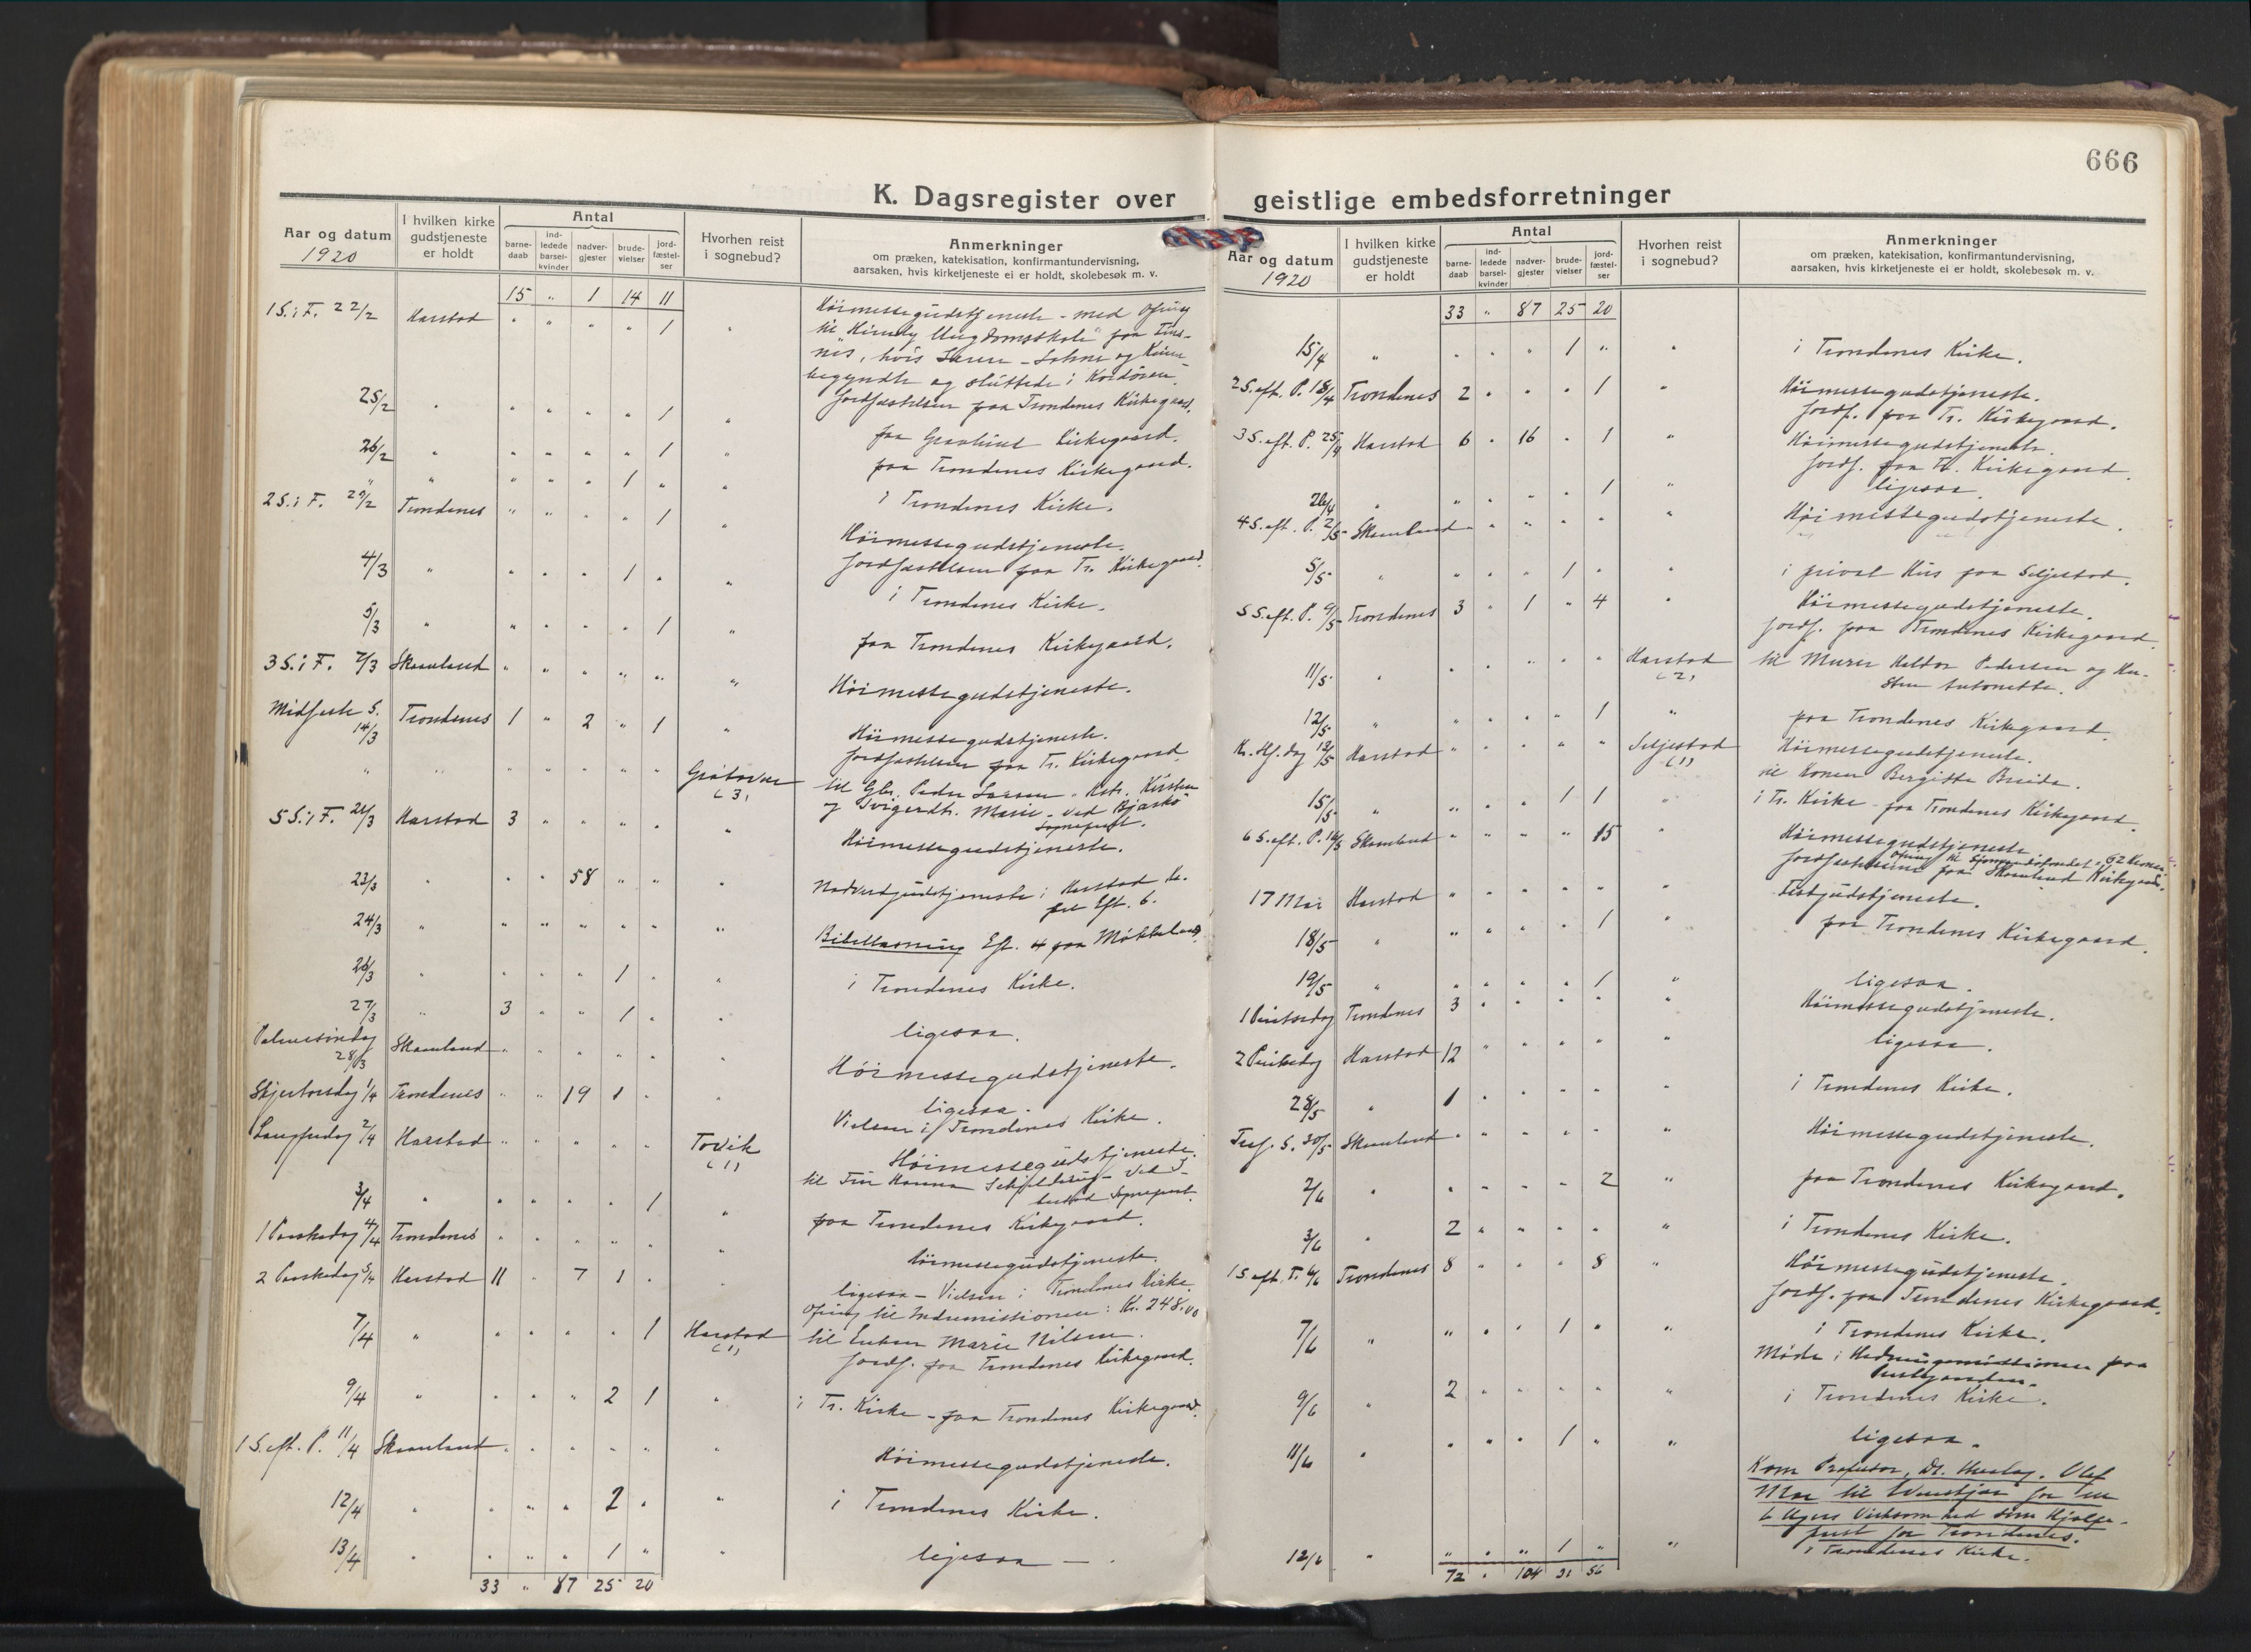 666
K. Dagsregister over geistlige embedsforretninger
Aar og datum
1920
I hvilken kirke gudstjeneste er holdt
Antal
barne-daab
ind-ledede barsel-kvinder
nadver-gjester
brude-vielser
jord-fæstel-ser
Hvorhen reist i sognebud?
Anmerkninger
om præken, katekisation, konfirmantundervisning,
aarsaken, hvis kirketjeneste ei er holdt, skolebesøk m. v.
15 " 1 14 11
1 S. i F. 22/2 Harstad " " " " 1 " Höimessegudstjeneste - med Ofring
til Ungdomsskole" paa Fins-
nes, hvis
begyndte og sluttede i Kordören.
Jordfæstelsen paa Trondenes Kirkegaard.
25/2 " " " " " 1 " paa Kirkegaard.
26/2 " " " " " 1 " paa Trondenes Kirkegaard.
" " " " " 1 " " i Trondenes Kirke.
2 S. i F. 29/2 Trondenes " " " " 1 " Höimessegudstjeneste.
Jordfæstelsen paa Tr. Kirkegaard.
4/3 " " " " 1 " " i Trondenes Kirke.
5/3 " " " " " 1 " paa Trondenes Kirkegaard.
3 S. i F. 7/3 Skaanland " " " " " " Höimessegudstjeneste.
Midfaste S. 14/3 Trondenes 1 " 2 " 1 " Höimessegudstjeneste.
Jordfæstelsen paa Tr. Kirkegaard.
" " " " " " " Gråtavær (3) til Gbr. Peder Larsen, Hstr. Kirsten
og Marie - ved Bjarkö
Sogneprest.
5 S. i F. 21/3 Harstad 3 " " " " " Höimessegudstjeneste.
23/3 " " " 58 " " " Nadverdgudstjeneste i Harstad K.
Eft. 6.
24/3 " " " " " " " Bibellæsning Eft. 4 paa Møkkeland.
26/3 " " " " 1 " " i Trondenes Kirke.
27/3 " 3 " " 1 " " ligesaa.
Palmesöndag 28/3 Skaanland " " " " " " Höimessegudstjeneste.
Skjertorsdag 1/4 Trondenes " " 19 1 " " ligesaa.
Vielsen i Trondenes Kirke.
Langfredag 2/4 Harstad " " " " " Tovik (1) Höimessegudstjeneste.
til Hanna - ved
Sogneprest.
3/4 " " " " " 1 " paa Trondenes Kirkegaard.
1 Paaskedag 4/4 Trondenes " " " " " " Höimessegudstjeneste.
2 Paaskedag 5/4 Harstad 11 " 7 1 " " ligesaa - Vielsen i Trondenes Kirke.
Ofring til Indremissionen: Kr. 248,00
7/4 " " " " " 1 Harstad (1) til Enken Marie Nilsen.
Jordf. paa Trondenes Kirkegaard.
9/4 " " " " 2 1 " i Tr. Kirke - paa Trondenes Kirkegaard.
1 S. eft. P. 11/4 Skaanland " " " " " " Höimessegudstjeneste.
12/4 " " " " 2 " " i Trondenes Kirke.
13/4 " " " " 1 " " ligesaa -
33 " 87 25 20
Aar og datum
1920
I hvilken kirke gudstjeneste er holdt
Antal
barne-daab
ind-ledede barsel-kvinder
nadver-gjester
brude-vielser
jord-fæstel-ser
Hvorhen reist i sognebud?
Anmerkninger
om præken, katekisation, konfirmantundervisning,
aarsaken, hvis kirketjeneste ei er holdt, skolebesøk m. v.
33 " 87 25 20
15/4 " " " " 1 " " i Trondenes Kirke.
2 S. eft. P. 18/4 Trondenes 2 " " " 1 " Höimessegudstjeneste.
Jordf. paa Tr. Kirkegaard.
3 S. eft. P. 25/4 Harstad 6 " 16 " 1 " Höimessegudstjeneste.
Jordf. paa Tr. Kirkegaard.
26/4 " " " " " 1 " ligesaa.
4 S. eft. P. 2/5 Skaanland " " " " " " Höimessegudstjeneste.
5/5 " " " " 1 " " i privat Hus paa Seljestad.
5 S. eft. P. 9/5 Trondenes 3 " 1 " 4 " Höimessegudstjeneste.
Jordf. paa Trondenes Kirkegaard.
11/5 " " " " " " Harstad (2) til Murer Haldor Pedersen og Hu-
stru Antonette.
12/5 " " " " " 1 " paa Trondenes Kirkegaard.
Kr. Hf. dag 13/5 Harstad " " " " " Seljestad (1) Höimessegudstjeneste.
til Konen Bergitte Breida.
15/5 " " " " 1 1 " i Tr. Kirke - paa Trondenes Kirkegaard.
6 S. eft. P. 16/5 Skaanland " " " " 15 " Höimessegudstjeneste.
Ofring til - 62 Kroner.
Jordfæstelsene paa Skaanland Kirkegaard.
17 Mai Harstad " " " " " " Festgudstjeneste.
18/5 " " " " " 1 " paa Trondenes Kirkegaard.
19/5 " " " " " 1 " ligesaa.
1 Pintsedag Trondenes 3 " " " " " Höimessegudstjeneste.
2 Pintsedag Harstad 12 " " " " " ligesaa.
28/5 " 1 " " " " " i Trondenes Kirke.
Tref. S. 30/5 Skaanland " " " " " " Höimessegudstjeneste.
2/6 " " " " " 2 " paa Trondenes Kirkegaard.
3/6 " 2 " " " " " i Trondenes Kirke.
1 S. eft. T. 6/6 Trondenes 8 " " " 8 " Höimessegudstjeneste.
Jordf. paa Trondenes Kirkegaard.
7/6 " " " " 1 " " i Trondenes Kirke.
Möde i Hedningemissionen paa
Prestgaarden.
9/6 " 2 " " " " " i Trondenes Kirke.
11/6 " " " " 1 " " ligesaa.
Kom Professor, Dr. theolog. Olaf
Moe til for en
6 Ugers Virksomhed som Hjelpe-
prest for Trondenes.
12/6 " " " " 1 " " i Trondenes Kirke.
72 " 104 31 56